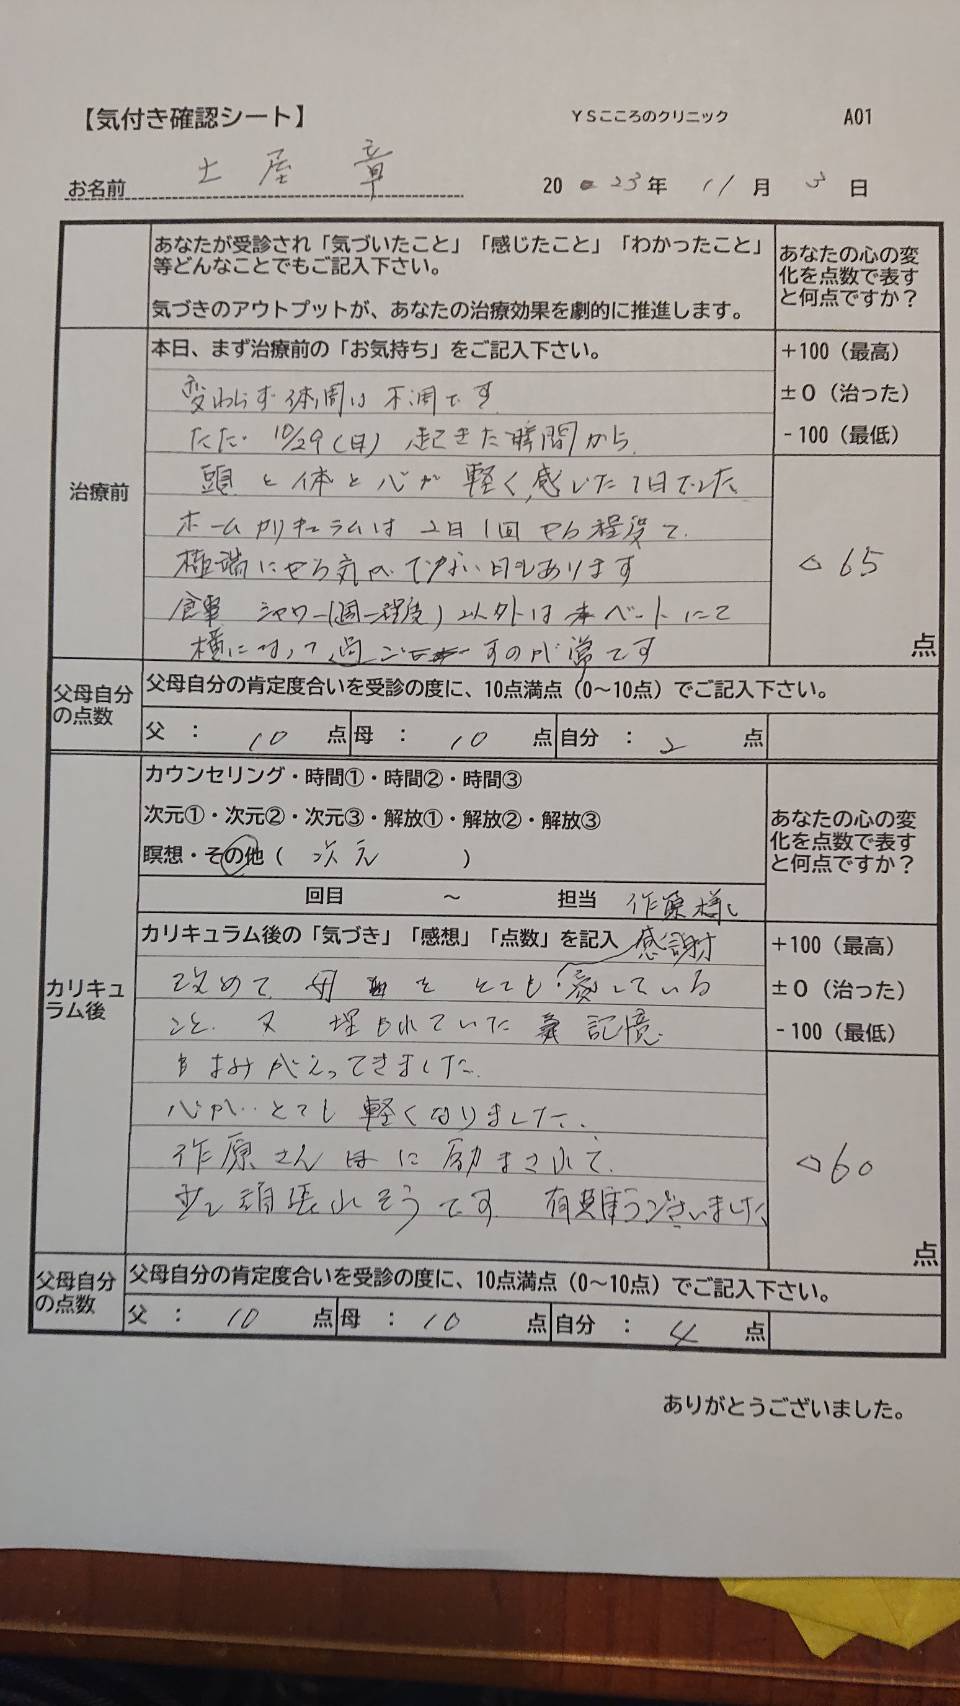 【気付き確認シート】 YSこころのクリニック A01
お名前 土屋 章 2023年 11月 3日
あなたが受診され「気づいたこと」「感じたこと」「わかったこと」
等どんなことでもご記入下さい。
気づきのアウトプットが、あなたの治療効果を劇的に推進します。
あなたの心の変
化を点数で表す
と何点ですか？
治療前
本日、まず治療前の「お気持ち」をご記入下さい。
変わらず体調は不調です
ただ 10/29(日) 起きた時間から
頭と体と心が軽く感じた1日でした
ホームカリキュラムは2日1回やる程度で
極端にやる気がでない日もあります
食事 シャワー(週一程度)以外はベットにて
横になって過ごすのが常です
+100（最高）
±0（治った）
-100（最低）
△65
点
父母自分
の点数
父母自分の肯定度合いを受診の度に、10点満点（0〜10点）でご記入下さい。
父 ： 10 点 母 ： 10 点 自分 ： 2 点
カリキュ
ラム後
カウンセリング・時間①・時間②・時間③
次元①・次元②・次元③・解放①・解放②・解放③
瞑想・その他（ 次元 ）
回目 〜 担当 作原様
あなたの心の変
化を点数で表す
と何点ですか？
カリキュラム後の「気づき」「感想」「点数」を記入
感謝
改めて 母をとても愛している
こと 又 埋もれていた 記憶
よみがえってきました
心が とても軽くなりました
作原さんに励まされて
頑張れそうです 有難うございました
+100（最高）
±0（治った）
-100（最低）
△60
点
父母自分
の点数
父母自分の肯定度合いを受診の度に、10点満点（0〜10点）でご記入下さい。
父 ： 10 点 母 ： 10 点 自分 ： 4 点
ありがとうございました。